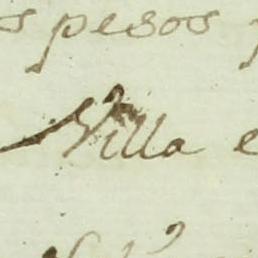 s pesos
Villa e